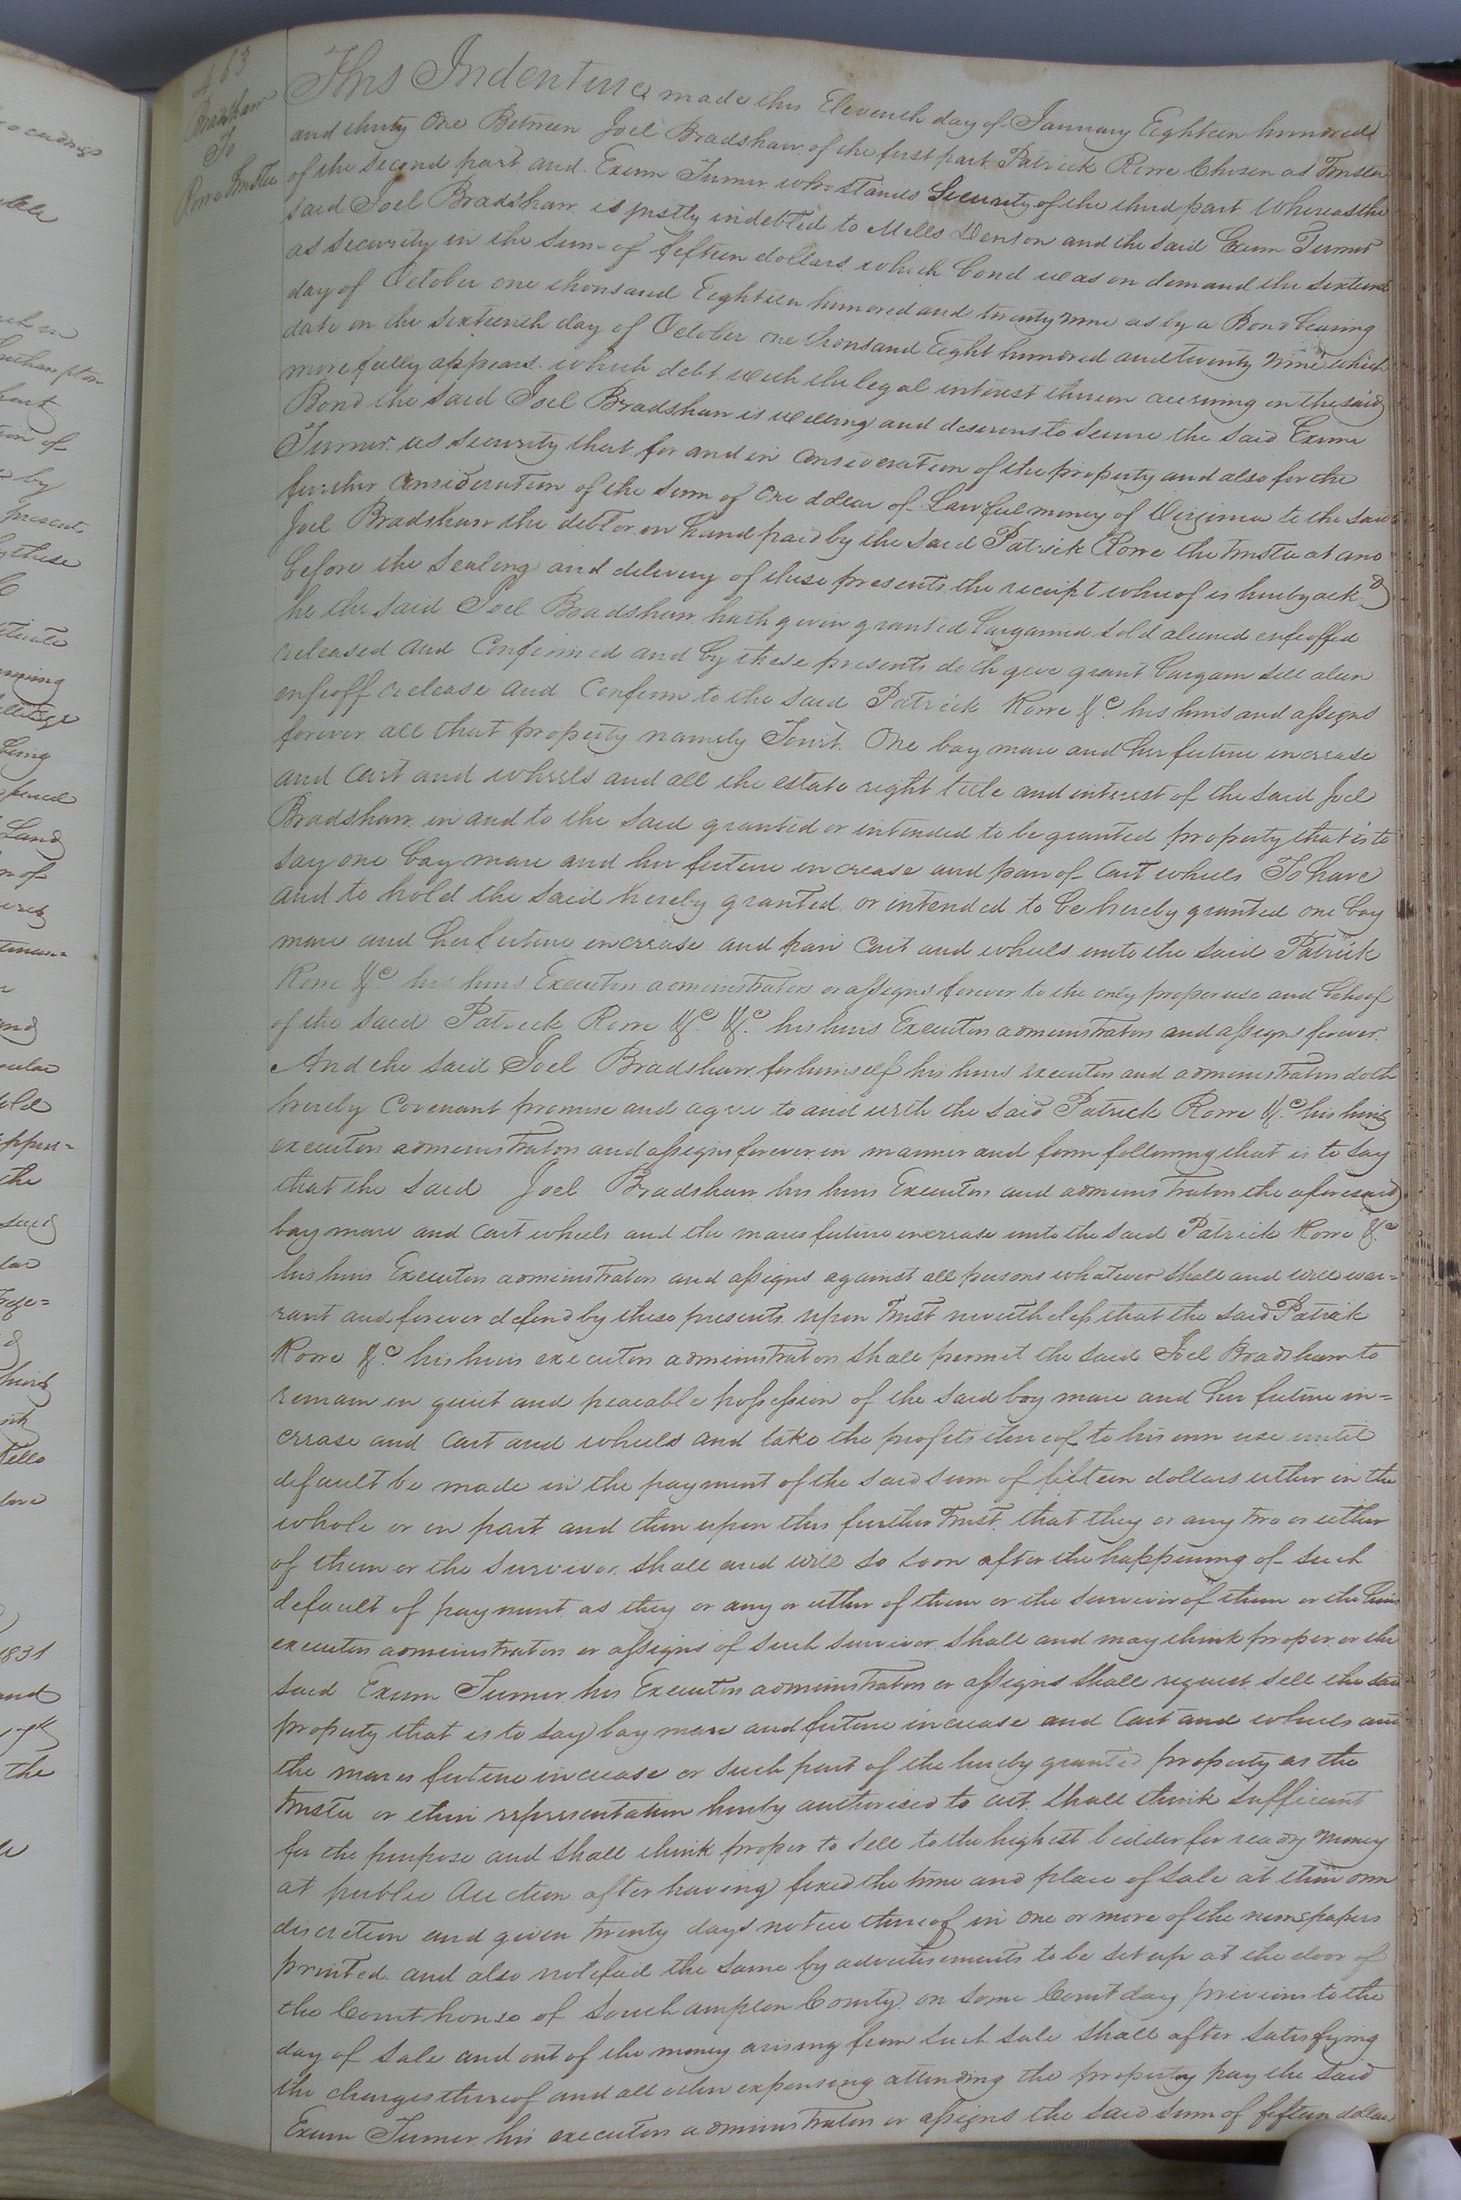 463
Bradshaw
To
Rowe Trustee
This Indenture made this Eleventh day of January Eighteen hundred
and thirty One Between Joel Bradshaw of the first part Patrick Rowe Chosen as Trustee
of the second part and Exum Turner who stands Security of the third part Whereas the
said Joel Bradshaw is justly indebted to Mills Denson and the said Exum Turner
as security in the sum of fifteen dollars which bond was on demand the sixteenth
day of October one thousand Eighteen hundred and twenty nine as by a Bond bearing
date on the sixteenth day of October one thousand Eight hundred and twenty nine which
more fully appears. which debt with the legal interest thereon accruing on the said
Bond the said Joel Bradshaw is willing and desirous to secure the said Exum
Turner as security that for and in Consideration of the property and also for the
further Consideration of the sum of One dollar of Lawful money of Virginia to the said
Joel Bradshaw the debtor in hand paid by the said Patrick Rowe the trustee at and
before the sealing and delivery of these presents the receipt whereof is hereby ackd
he the said Joel Bradshaw hath given granted bargained sold aliened enfeoffed
released and Confirmed and by these presents doth give grant bargain sell alien
enfeoff release and Confirm to the said Patrick Rowe &c his heirs and assigns
forever all that property namely Towit. One bay mare and her future increase
and Cart and wheels and all the estate right title and interest of the said Joel
Bradshaw in and to the said granted or intended to be granted property that is to
say one bay mare and her future increase and pair of Cart wheels To have
and to hold the said hereby granted or intended to be hereby granted one bay
mare and her future increase and pair Cart and wheels unto the said Patrick
Rowe &c his heirs Executors administrators or assigns forever to the only proper use and behoof
of the said Patrick Rowe &c &c his heirs Executors administrators and assigns forever.
And the said Joel Bradshaw for himself his heirs executors and administrators doth
hereby Covenant promise and agree to and with the said Patrick Rowe &c his heirs
executors administrators and assigns forever in manner and form following that is to say
that the said Joel Bradshaw his heirs Executors and administrators the aforesaid
bay mare and Cart wheels and the mares future increase unto the said Patrick Rowe &c
his heirs Executors administrators and assigns against all persons whatever shall and will war=
rant and forever defend by these presents upon trust nevertheless that the said Patrick
Rowe &c his heirs executors administrators shall permit the said Joel Bradshaw to
remain in quiet and peacable possession of the said bay mare and her future in=
crease and Cart and wheels and take the profits thereof to his own use until
default be made in the payment of the said sum of fifteen dollars either in the
whole or in part and then upon this further Trust that they or any two or either
of them or the survivor shall and will so soon after the happening of such
default of payment as they or any or either of them or the survivor of them or the heirs
executors administrators or assigns of such survivor shall and may think proper or the
said Exum Turner his Executors administrators or assigns shall request sell the said
property that is to say bay mare and future increase and Cart and wheels and
the mares future increase or such part of the hereby granted property as the
trustee or their representation hereby authorised to act shall think sufficient
for the purpose and shall think proper to sell to the highest bidder for ready money
at public Auction after having fixed the time and place of sale at their own
discretion and given twenty days notice thereof in one or more of the newspapers
printed and also notified the same by advertisements to be set up at the door of
the Courthouse of Southampton County on some Court day previous to the
day of sale and out of the money arising from such sale shall after satisfying
the charges thereof and all other expensing attending the property pay the said
Exum Turner his executors administrators or assigns the said sum of fifteen dollars